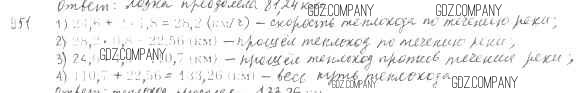 Ответ: лодка преодолела 81,2 км GDZ.COMPANY
951 1) 24,6 + 1,8 = 28,2 (км/ч) – скорость теплохода по течению реки;
2) 28,2 · 0,8 = 22,56 (км) – прошёл теплоход по течению реки;
3) 24,6 GDZ.COMPANY 0,7 (км) – прошёл теплоход против течения реки;
4) 110,7 + 22,56 = 133,26 (км) – весь путь теплохода.
GDZ.COMPANY GDZ.COMPANY
Ответ: теплоход 133,26